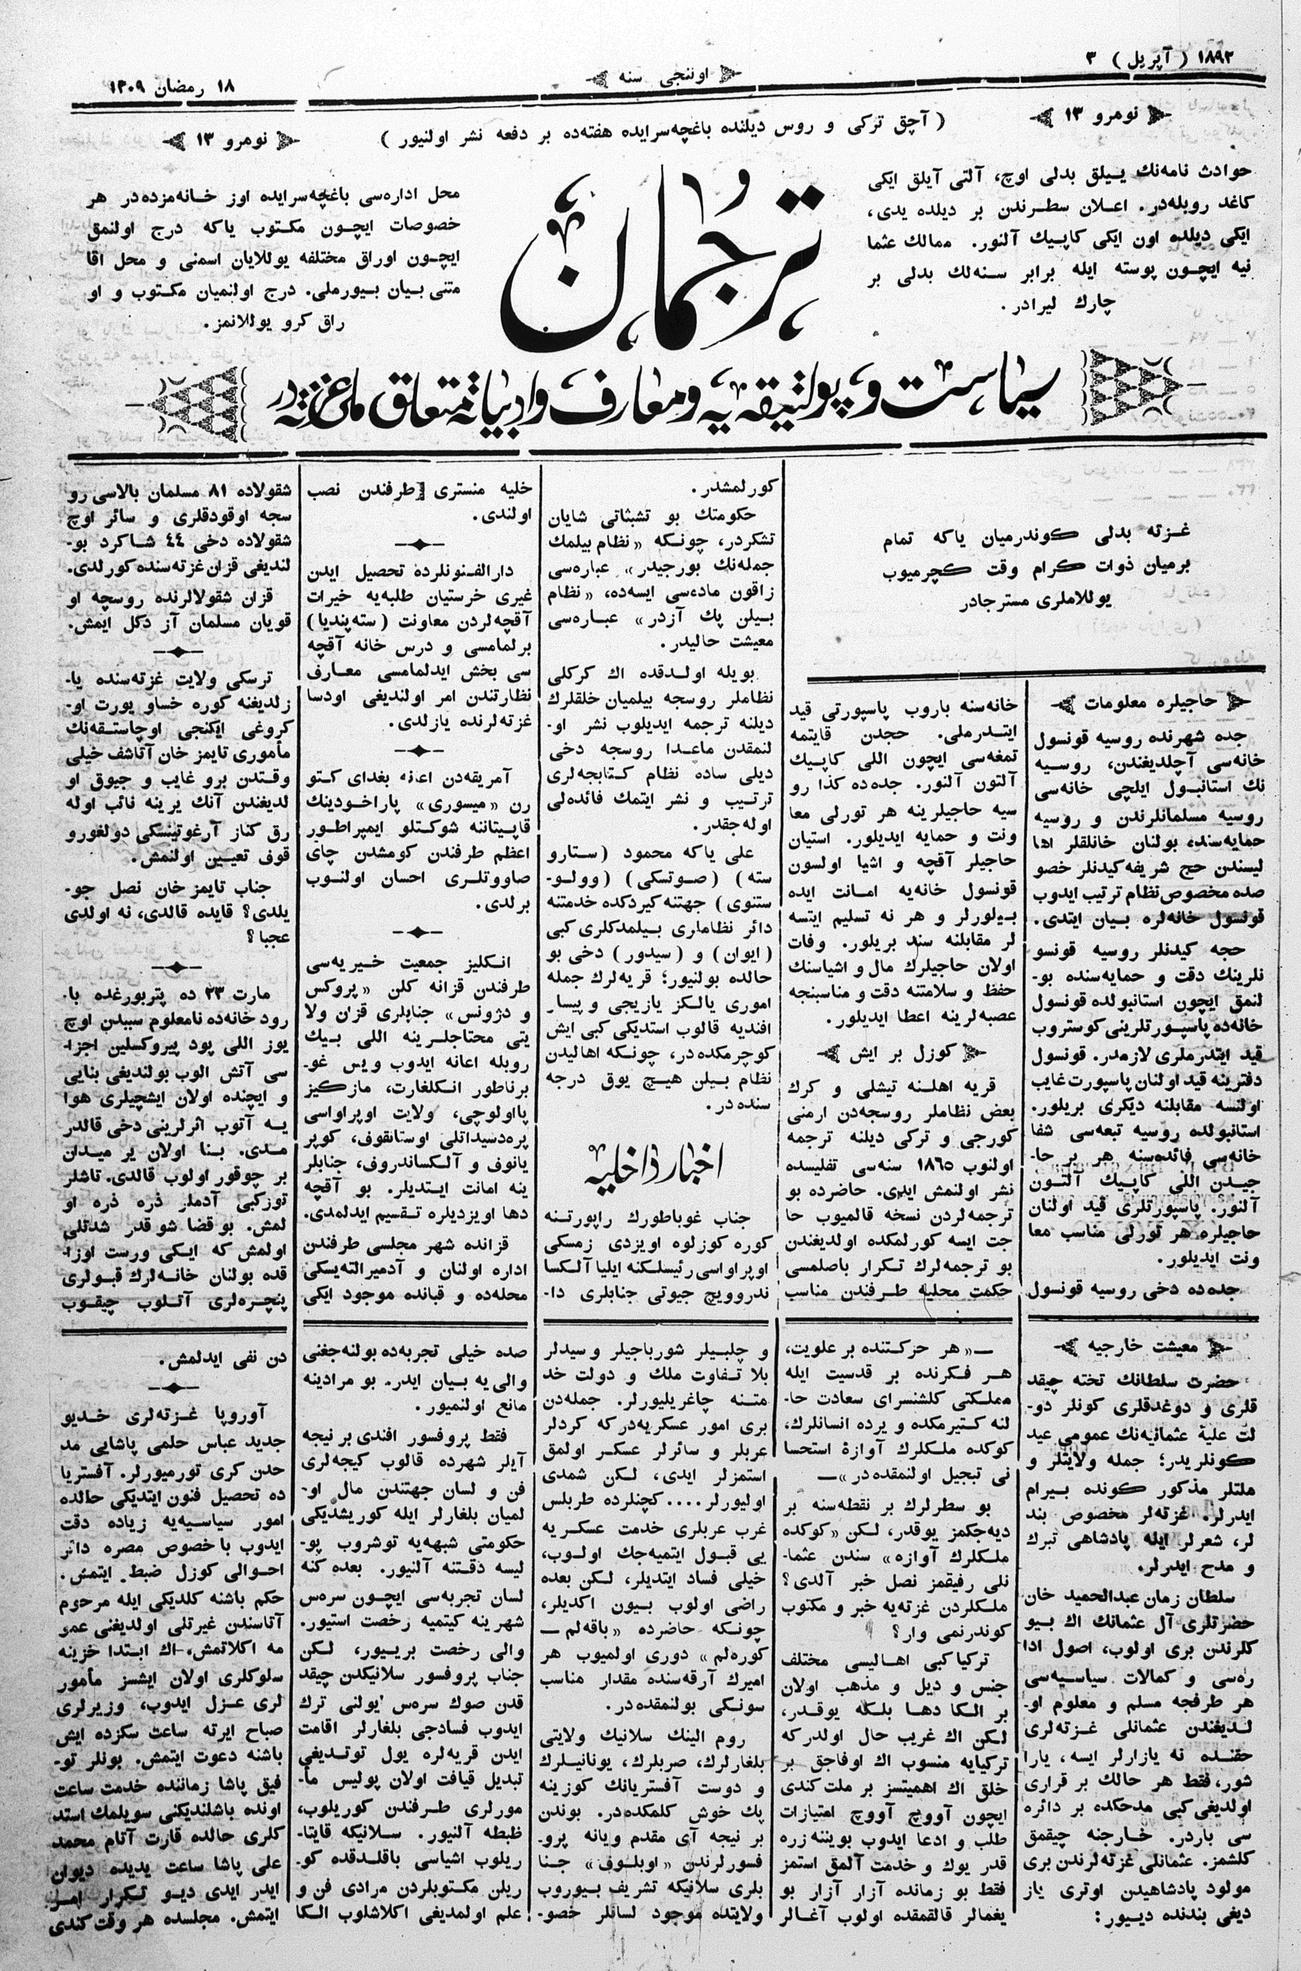 ١٨٩٢ ( آپریل ) ٣
اوننجی سنه
١٨ رمضان ١٣٠٩
نومرو ١٣
( آچق ترکی و روس دیلنده باغچه‌سرایده هفته‌ده بر دفعه نشر اولنیور )
نومرو ١٣
حوادث نامه‌نك ییلق بدلی اوچ، آلتی آیلق ایکی
کاغد روبله‌در. اعلان سطرندن بر دیلده یدی،
ایکی دیلده اون ایکی کاپیك آلنور. ممالك عثما
نیه ایچون پوسته ایله برابر سنه‌لك بدلی بر
چارك لیرادر.
ترجمان
محل اداره‌سی باغچه‌سرایده اوز خانه‌مزده‌در هر
خصوصات ایچون مکتوب یاکه درج اولنمق
ایچون اوراق مختلفه یوللایان اسمنی و محل اقا
متنی بیان بیورملی. درج اولنمیان مکتوب و او
راق کرو یوللانمز.
سیاست و پولتیقه‌یه و معارف و ادبیاته متعلق ملی غزته‌در
غزته بدلی کوندرمیان یاکه تمام
برمیان ذوات کرام وقت کچرمیوب
یوللاملری مسترجادر
حاجیلره معلومات
جده شهرنده روسیه قونسول
خانه‌سی آچلدیغندن، روسیه
نك استانبول ایلچی خانه‌سی
روسیه مسلمانلرندن و روسیه
حمایه‌سنده بولنان خانلقلر اها
لیسندن حج شریفه کیدنلر خصو
صده مخصوص نظام ترتیب ایدوب
قونسول خانه‌لره بیان ایتدی.
حجه کیدنلر روسیه قونسو
نلرینك دقت و حمایه‌سنده بو-
لنمق ایچون استانبولده قونسول
خانه‌ده پاسپورتلرینی کوستروب
قید ایتدرملری لازمدر. قونسول
دفترینه قید اولنان پاسپورت غایب
اولنسه مقابلنه دیکری بریلور.
استانبولده روسیه تبعه‌سی شفا
خانه‌سی فائده‌سنه هر بر حا-
جیدن اللی کاپیك آلتون
آلنور. پاسپورتلری قید اولنان
حاجیلره هر تورلی مناسب معا
ونت ایدیلور.
جده‌ده دخی روسیه قونسول
خانه‌سنه باروب پاسپورتی قید
ایتدرملی. حجدن قایتمه
تمغه‌سی ایچون اللی کاپیك
آلتون آلنور. جده‌ده کذا رو
سیه حاجیلرینه هر تورلی معا
ونت و حمایه ایدیلور. استیان
حاجیلر آقچه و اشیا اولسون
قونسول خانه‌یه امانت ایده
بیلورلر و هر نه تسلیم ایتسه
لر مقابلنه سند بریلور. وفات
اولان حاجیلرك مال و اشیاسنك
حفظ و سلامتنه دقت و مناسبنجه
عصبه‌لرینه اعطا ایدیلور.
کوزل بر ایش
قریه اهلنه تیشلی و کرك
بعض نظاملر روسجه‌دن ارمنی
کورجی و ترکی دیلنه ترجمه
اولنوب ١٨٦٥ سنه‌سی تفلیسده
نشر اولنمش ایدی. حاضرده بو
ترجمه‌لردن نسخه قالمیوب حا
جت ایسه کورلمکده اولدیغندن
بو ترجمه‌لرك تکرار باصلمسی
حکمت محلیه طرفندن مناسب
کورلمشدر.
حکومتك بو تشبثاتی شایان
تشکردر، چونکه «نظام بیلمك
جمله‌نك بورجیدر» عباره‌سی
زاقون ماده‌سی ایسه‌ده، «نظام
بیلن پك آزدر» عباره‌سی
معیشت حالیدر.
بویله اولدقده اك کرکلی
نظاملر روسجه بیلمیان خلقلرك
دیلنه ترجمه ایدیلوب نشر او-
لنمقدن ماعدا روسجه دخی
دیلی ساده نظام کتابجه‌لری
ترتیب و نشر ایتمك فائده‌لی
اوله‌جقدر.
علی یاکه محمود (ستارو
سته) (صوتسکی) (وولو-
ستنوی) جهتنه کیردکده خدمتنه
دائر نظاماری بیلمدکلری کبی
(ایوان) و (سیدور) دخی بو
حالده بولنیور؛ قریه‌لرك جمله
اموری یالکز یازیجی و پیسار
افندیه قالوب استدیکی کبی ایش
کوچرمکده‌در، چونکه اهالیدن
نظام بیلن هیچ یوق درجه
سنده‌در.
اخبار داخلیه
جناب غوباطورك راپورتنه
کوره کوزلوه اویزدی زمسکی
اوپراواسی رئیسلکنه ایلیا آلکسا
ندروویچ جیوتی جنابلری دا-
خلیه منستری طرفندن نصب
اولندی.
دارالفنونلرده تحصیل ایدن
غیری خرستیان طلبه‌یه خیرات
آقچه‌لردن معاونت (سته‌پندیا)
برلمامسی و درس خانه آقچه
سی بخش ایدلمامسی معارف
نظارتندن امر اولندیغی اودسا
غزته‌لرنده یازلدی.
آمریقه‌دن اعانه بغدای کتو
رن «میسوری» پاراخودینك
قاپیتاننه شوکتلو ایمپراطور
اعظم طرفندن کومشدن چای
صاووتلری احسان اولنوب
برلدی.
انکلیز جمعیت خیریه‌سی
طرفندن قزانه کلن «پروکس
و دژونس» جنابلری قزان ولا
یتی محتاجلرینه اللی بیك
روبله اعانه ایدوب ویس غو-
برناطور انکلغارت، مارکیز
پااولوچی، ولایت اوپراواسی
پره‌دسیداتلی اوستانقوف، کوپر
یانوف و آلکساندروف، جنابلر
ینه امانت ایتدیلر. بو آقچه
دها اویزدیلره تقسیم ایدلمدی.
قزانده شهر مجلسی طرفندن
اداره اولنان و آدمیرالته‌یسکی
محله‌ده و قبانده موجود ایکی
شقولاده ٨١ مسلمان بالاسی رو
سجه اوقودقلری و سائر اوچ
شقولاده دخی ٤٤ شاکرد بو-
لندیغی قزان غزته‌سنده کورلدی.
قزان شقولالرنده روسچه او
قویان مسلمان آز دکل ایمش.
ترسکی ولایت غزته‌سنده یا-
زلدیغنه کوره خساو یورت او-
کروغی ایکنجی اوچاستقه‌نك
مأموری تایمز خان آتاشف خیلی
وقتدن برو غایب و جیوق او
لدیغندن آنك یرینه نائب اوله
رق کناز آرغوتینسکی دولغورو
قوف تعیین اولنمش.
جناب تایمز خان نصل جو-
یلدی؟ قایده قالدی، نه اولدی
عجبا؟
مارت ٢٣ ده پتربورغده با-
رود خانه‌ده نامعلوم سببدن اوچ
یوز اللی پود پیروکسلین اجزا-
سی آتش الوب بولندیغی بنایی
و ایچنده اولان ایشچیلری هوا
یه آتوب اثرلرینی دخی قالدر
مدی. بنا اولان یر میدان
بر چوقور اولوب قالدی. تاشلر
توزکبی آدملر ذره ذره او
لمش. بوقضا شو قدر شدتلی
اولمش که ایکی ورست اوزا-
قده بولنان خانه‌لرك قبولری
پنچره‌لری آتلوب چیقوب
معیشت خارجیه
حضرت سلطانك تخته چیقد
قلری و دوغدقلری کونلر دو-
لت علیهٔ عثمانیه‌نك عمومی عید
کونلریدر؛ جمله ولایتلر و
ملتلر مذکور کونده بیرام
ایدرلر. غزته‌لر مخصوص بند
لر، شعرلر ایله پادشاهی تبرك
و مدح ایدرلر.
سلطان زمان عبدالحمید خان
حضرتلری آل عثمانك اك بیو
کلرندن بری اولوب، اصول ادا
ره‌سی و کمالات سیاسیه‌سی
هر طرفجه مسلم و معلوم او-
لدیغندن عثمانلی غزته‌لری
حقنده نه یازارلر ایسه، یارا
شور، فقط هر حالك بر قراری
اولدیغی کبی مدحکده بر دائره
سی باردر. خارجنه چیقمق
کلشمز. عثمانلی غزته‌لرندن بری
مولود پادشاهیدن اوتری یاز
دیغی بندنده دییور:
—«هر حرکتنده بر علویت،
هر فکرنده بر قدسیت ایله
مملکتی کلشنسرای سعادت حا-
لنه کتیرمکده و یرده انسانلرك،
کوکده ملکلرك آوازهٔ استحسا
نی تبجیل اولنمقده‌در»—
بو سطرلرك بر نقطه‌سنه بر
دیه‌جکمز یوقدر، لکن «کوکده
ملکلرك آوازه» سندن عثما-
نلی رفیقمز نصل خبر آلدی؟
ملکلردن غزته‌یه خبر و مکتوب
کوندرنمی وار؟
ترکیا کبی اهالیسی مختلف
جنس و دیل و مذهب اولان
بر الکا دها بلکه یوقدر،
لکن اك غریب حال اولدرکه
ترکیایه منسوب اك اوفاجق بر
خلق اك اهمیتسز بر ملت کندی
ایچون آووچ آووچ امتیازات
طلب و ادعا ایدوب بویننه زره
قدر یوك و خدمت آلمق استمز
فقط بو زمانده آزار آزار بو
یغمالر قالقمقده اولوب آغالر
و چلبیلر شورباجیلر و سیدلر
بلا تفاوت ملك و دولت خد
متنه چاغریلیورلر. جمله‌دن
بری امور عسکریه‌در که کردلر
عربلر و سائرلر عسکر اولمق
استمزلر ایدی، لکن شمدی
اولیورلر.... کچنلرده طربلس
غرب عربلری خدمت عسکریه
یی قبول ایتمیه‌جك اولوب،
خیلی فساد ایتدیلر، لکن بعده
راضی اولوب بیون اکدیلر،
چونکه حاضرده «باقه‌لم —
کوره‌لم» دوری اولمیوب هر
امیرك آرقه‌سنده مقدار مناسب
سونکی بولنمقده‌در.
روم الینك سلانیك ولایتی
بلغارلرك، صربلرك، یونانیلرك
و دوست آفستریانك کوزینه
پك خوش کلمکده‌در. بوندن
بر نیجه آی مقدم ویانه پرو-
فسورلرندن «اوبلوف» جنا
بلری سلانیکه تشریف بیوروب
ولایتده موجود لسانلر خصو-
صده خیلی تجربه‌ده بولنه‌جغنی
والی‌یه بیان ایدر. بو مرادینه
مانع اولنمیور.
فقط پروفسور افندی بر نیجه
آیلر شهرده قالوب کیجه‌لری
فن و لسان جهتندن مال او-
لمیان بلغارلر ایله کوریشدیکی
حکومتی شبهه‌یه توشروب پو-
لیسه دقتنه آلنیور. بعده کنه
لسان تجربه‌سی ایچون سره‌س
شهرینه کیتمیه رخصت استیور.
والی رخصت بریبور، لکن
جناب پروفسور سلانیکدن چیقد
قدن صوك سره‌س یولنی ترك
ایدوب فسادجی بلغارلر اقامت
ایدن قریه‌لره یول توتدیغی
تبدیل قیافت اولان پولیس مأ-
مورلری طرفندن کوریلوب،
ظبطه آلنیور. سلانیکه قایتا-
ریلوب اشیاسی باقلدقده کو-
ریلن مکتوبلردن مرادی فن و
علم اولمدیغی اکلاشلوب الکا
دن نفی ایدلمش.
آوروپا غزته‌لری خدیو
جدید عباس حلمی پاشایی مد
حدن کری تورمیورلر. آفستریا
ده تحصیل فنون ایتدیکی حالده
امور سیاسیه‌یه زیاده دقت
ایدوب باخصوص مصره دائر
احوالی کوزل ضبط ایتمش.
حکم باشنه کلدیکی ایله مرحوم
آتاسندن غیرتلی اولدیغنی عمو
مه اکلاتمش، اك ابتدا خزینه
سلوکلری اولان ایشسز مأمور
لری عزل ایدوب، وزیرلری
صباح ایرته ساعت سکزده ایش
باشنه دعوت ایتمش. بونلر تو-
فیق پاشا زماننده خدمت ساعت
اونده باشلندیکنی سویلمك استد
کلری حالده قارت آتام محمد
علی پاشا ساعت یدیده دیوان
ایدر ایدی دیو تکرار امر
ایتمش. مجلسده هر وقت کندی